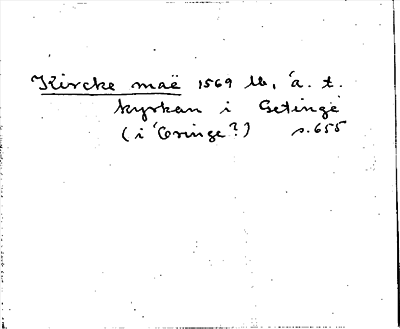 Kircke maë 1569 lb, å. t.
kyrkan i Getinge
(i Öringe?) s. 655